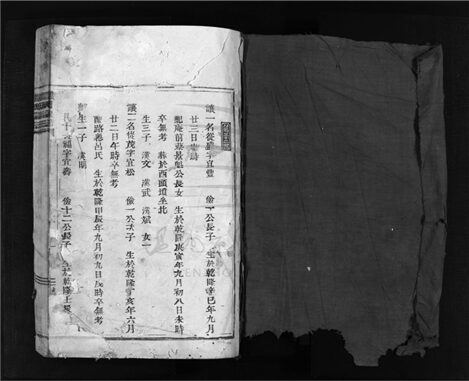 讓一名從 字宜豐 儉一公長子 生於乾隆辛巳年九月
廿三日 時
配庵前 景魁公長女 生於乾隆庚寅年九月初八日未時
卒無考 葬於西頭墳坐北
生三子 漢文 漢武 漢斌 女一
讓二名從茂字宜松 儉一公次子 生於乾隆 亥年六月
廿二日午時卒無考
配路巷呂氏 生於乾隆甲辰年九月初九日 時卒無考
生一子 漢
福字宜壽 儉十二公長子 生於乾隆